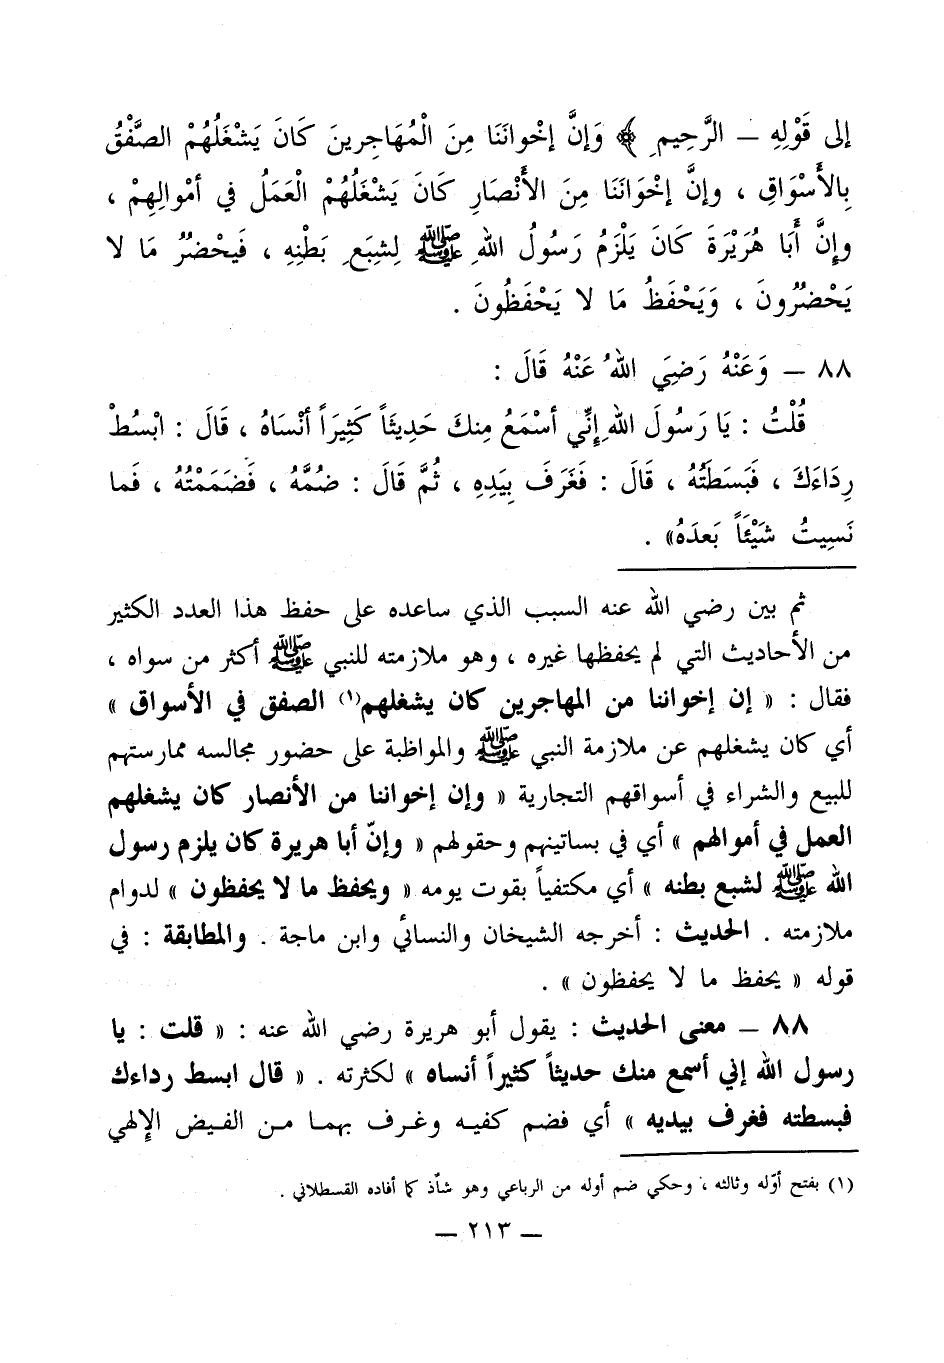 إلى قَوْلِهِ — الرَّحِيمِ ﴾ وَإِنَّ إخْوانَنَا مِنَ الْمُهَاجِرِينَ كَانَ يَشْغَلُهُمْ الصَّفْقُ
بِالأَسْوَاقِ ، وإنَّ إخْوَانَنَا مِنَ الأَنْصَارِ كَانَ يَشْغَلُهُمْ الْعَمَلُ في أمْوالِهِمْ ،
وإِنَّ أَبَا هُرَيْرَةَ كَانَ يَلْزَمُ رَسُولُ اللهِ ﷺ لِشِبَعِ بَطْنِهِ ، فَيحْضرُ مَا لا
يَحْضرُونَ ، وَيَحْفَظُ مَا لا يَحْفَظُونَ .
٨٨ — وَعَنْهُ رَضِيَ اللهُ عَنْهُ قَالَ :
قُلْتُ : يَا رَسُولَ اللهِ إنِّي أسْمَعُ مِنكَ حَدِيثَاً كَثِيرَاً أنْسَاهُ ، قَالَ : ابْسُطْ
رِدَاءَكَ ، فَبَسَطَتُهُ ، قَالَ : فَغَرَفَ بِيَدِهِ ، ثُمَّ قَالَ : ضُمَّهُ ، فَضَمَمْتُهُ ، فَما
نَسِيتُ شَيْئَاً بَعدَهُ» .
ثم بين رضي الله عنه السبب الذي ساعده على حفظ هذا العدد الكثير
من الأحاديث التي لم يحفظها غيره ، وهو ملازمته للنبي ﷺ أكثر من سواه ،
فقال : « إن إخواننا من المهاجرين كان يشغلهم(١) الصفق في الأسواق »
أي كان يشغلهم عن ملازمة النبي ﷺ والمواظبة على حضور مجالسه ممارستهم
للبيع والشراء في أسواقهم التجارية « وإن إخواننا من الأنصار كان يشغلهم
العمل في أموالهم » أي في بساتينهم وحقولهم « وإنّ أبا هريرة كان يلزم رسول
الله ﷺ لشبع بطنه » أي مكتفياً بقوت يومه « ويحفظ ما لا يحفظون » لدوام
ملازمته . الحديث : أخرجه الشيخان والنسائي وابن ماجة . والمطابقة : في
قوله « يحفظ ما لا يحفظون » .
٨٨ — معنى الحديث : يقول أبو هريرة رضي الله عنه : « قلت : يا
رسول الله إني أسمع منك حديثاً كثيراً أنساه » لكثرته . « قال ابسط رداءك
فبسطته فغرف بيديه » أي فضم كفيه وغرف بهما من الفيض الإلهي
(١) بفتح أوّله وثالثه ، وحكي ضم أوله من الرباعي وهو شاّذ كما أفاده القسطلاني .
— ٢١٣ —